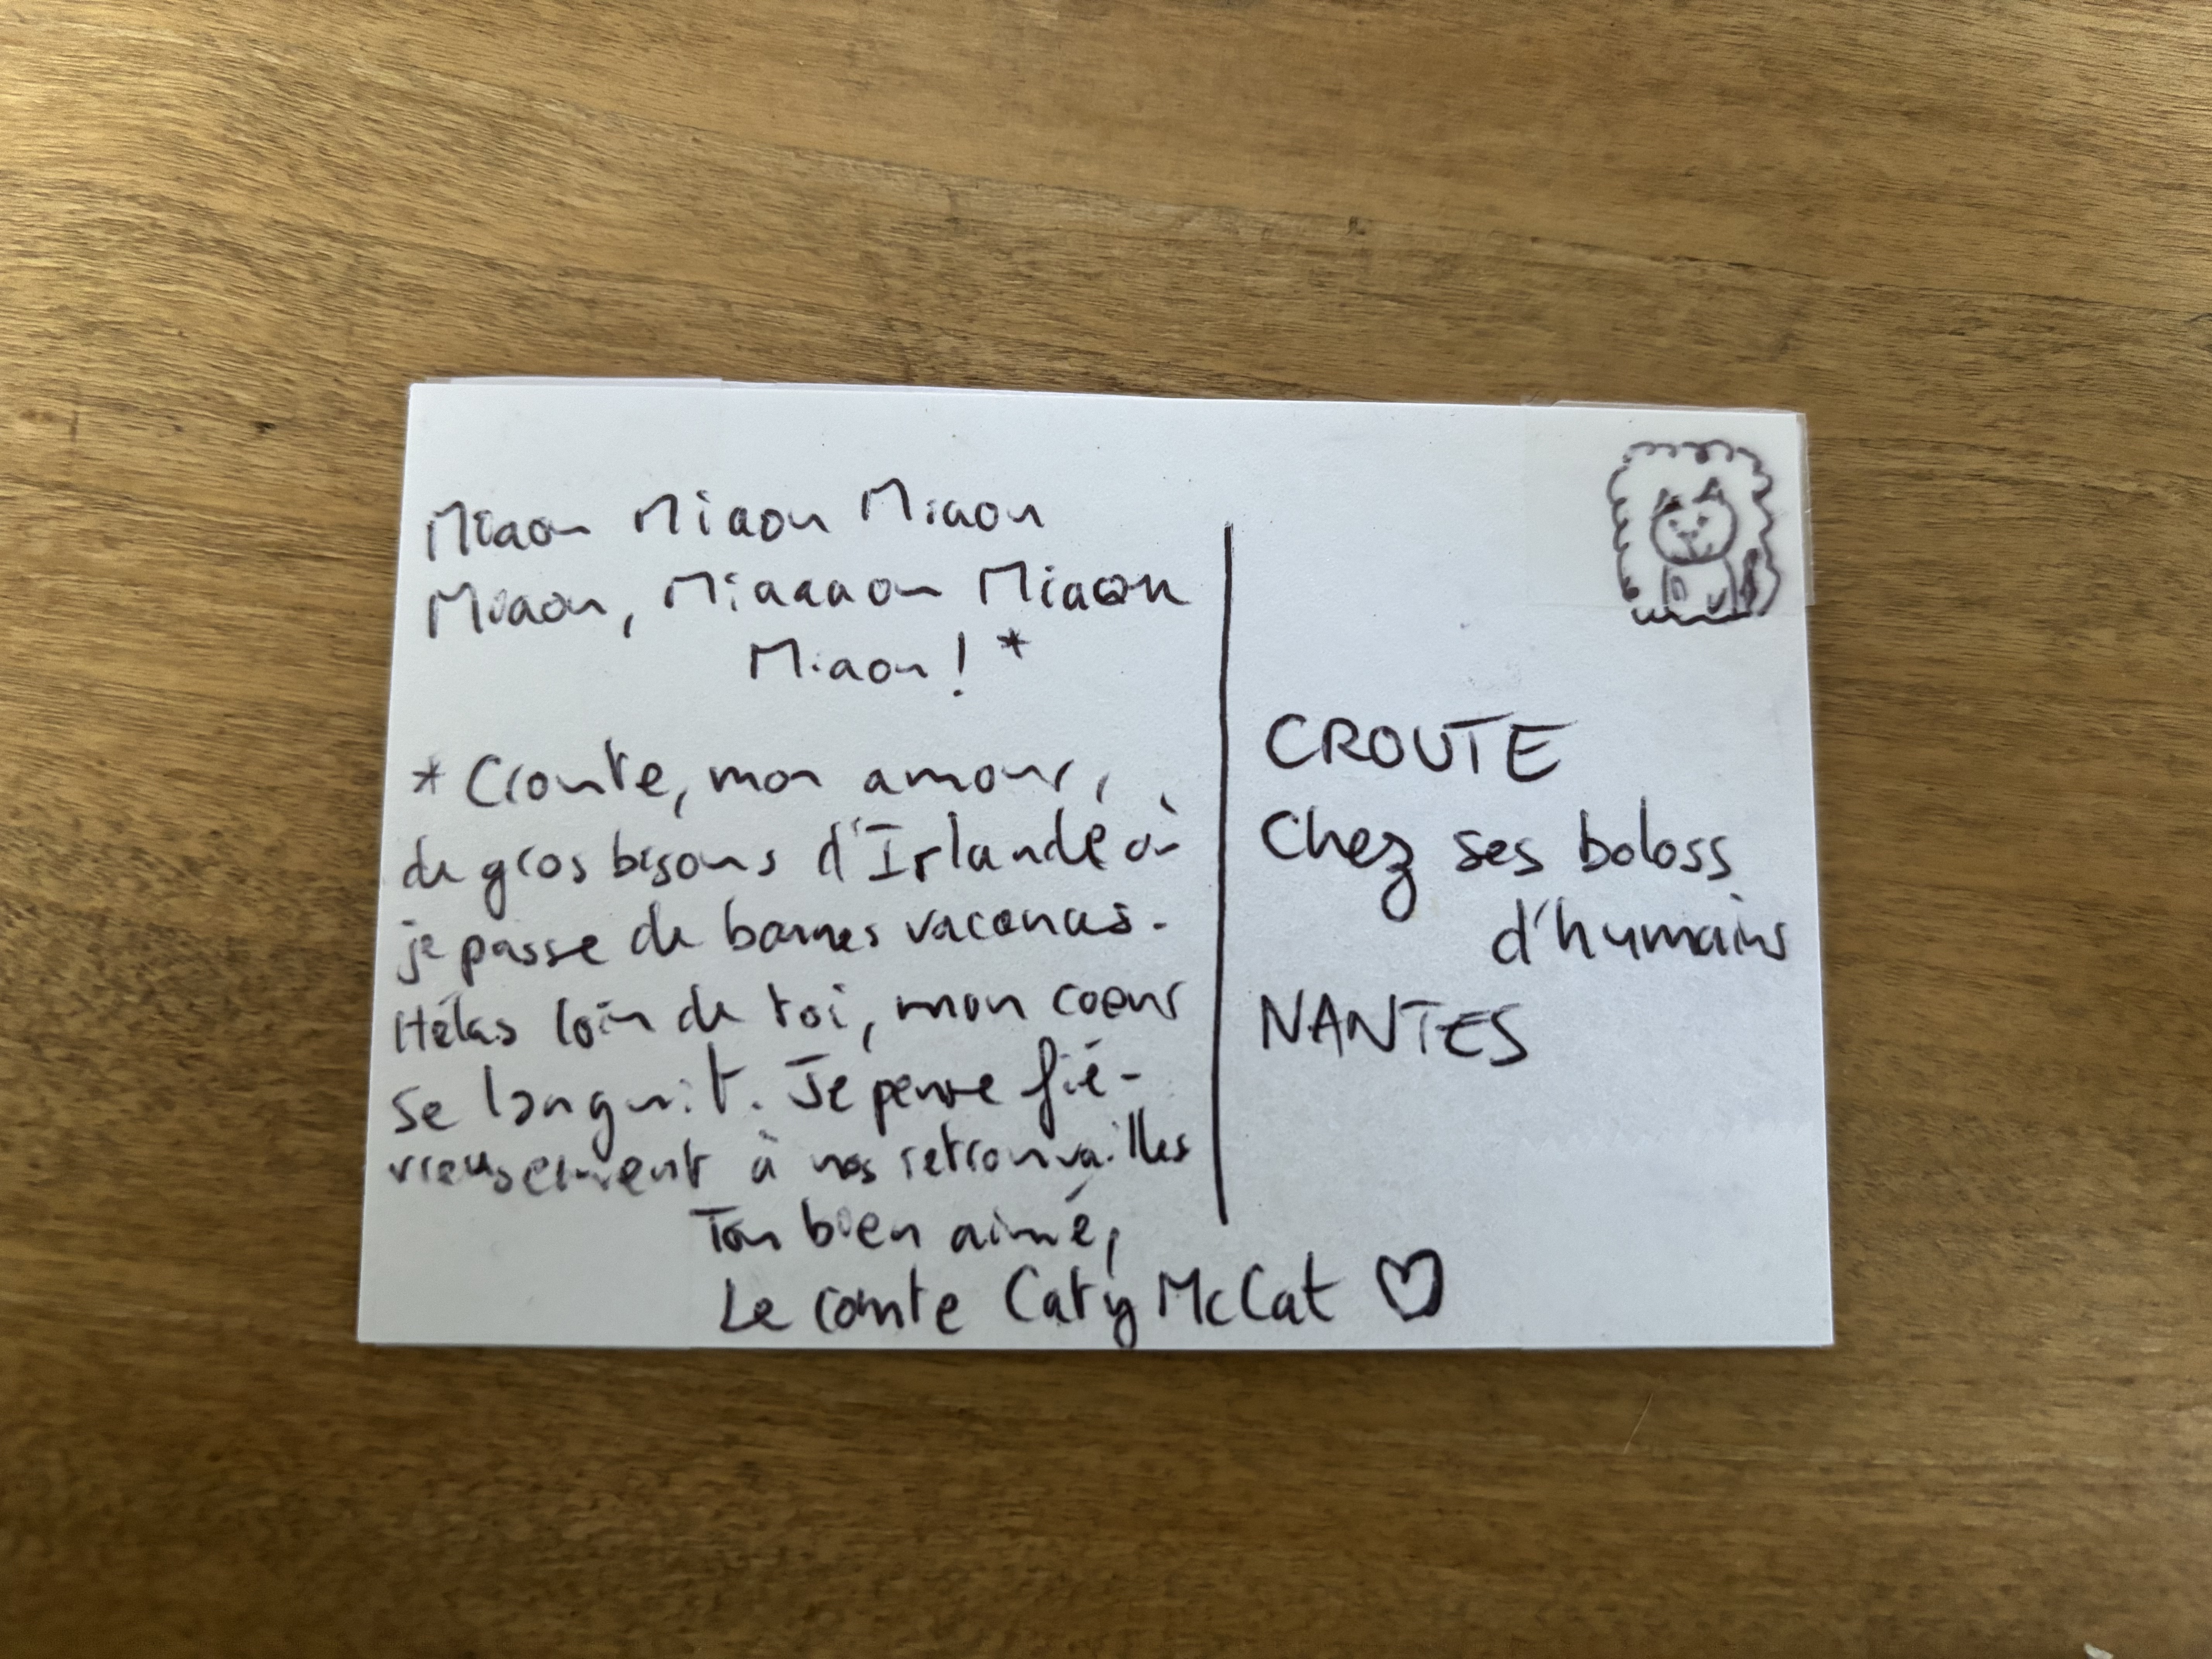 Miaou Miaou Miaou
Miaou, Miaaaou Miaou
Miaou ! *
* Croute, mon amour,
de gros bisous d'Irlande où
je passe de bonnes vacances.
Hélas loin de toi, mon coeur
se languit. Je pense fié-
vreusement à nos retrouvailles
Ton bien aimé,
Le comte Caty McCat ♡
CROUTE
Chez ses boloss
d'humains
NANTES